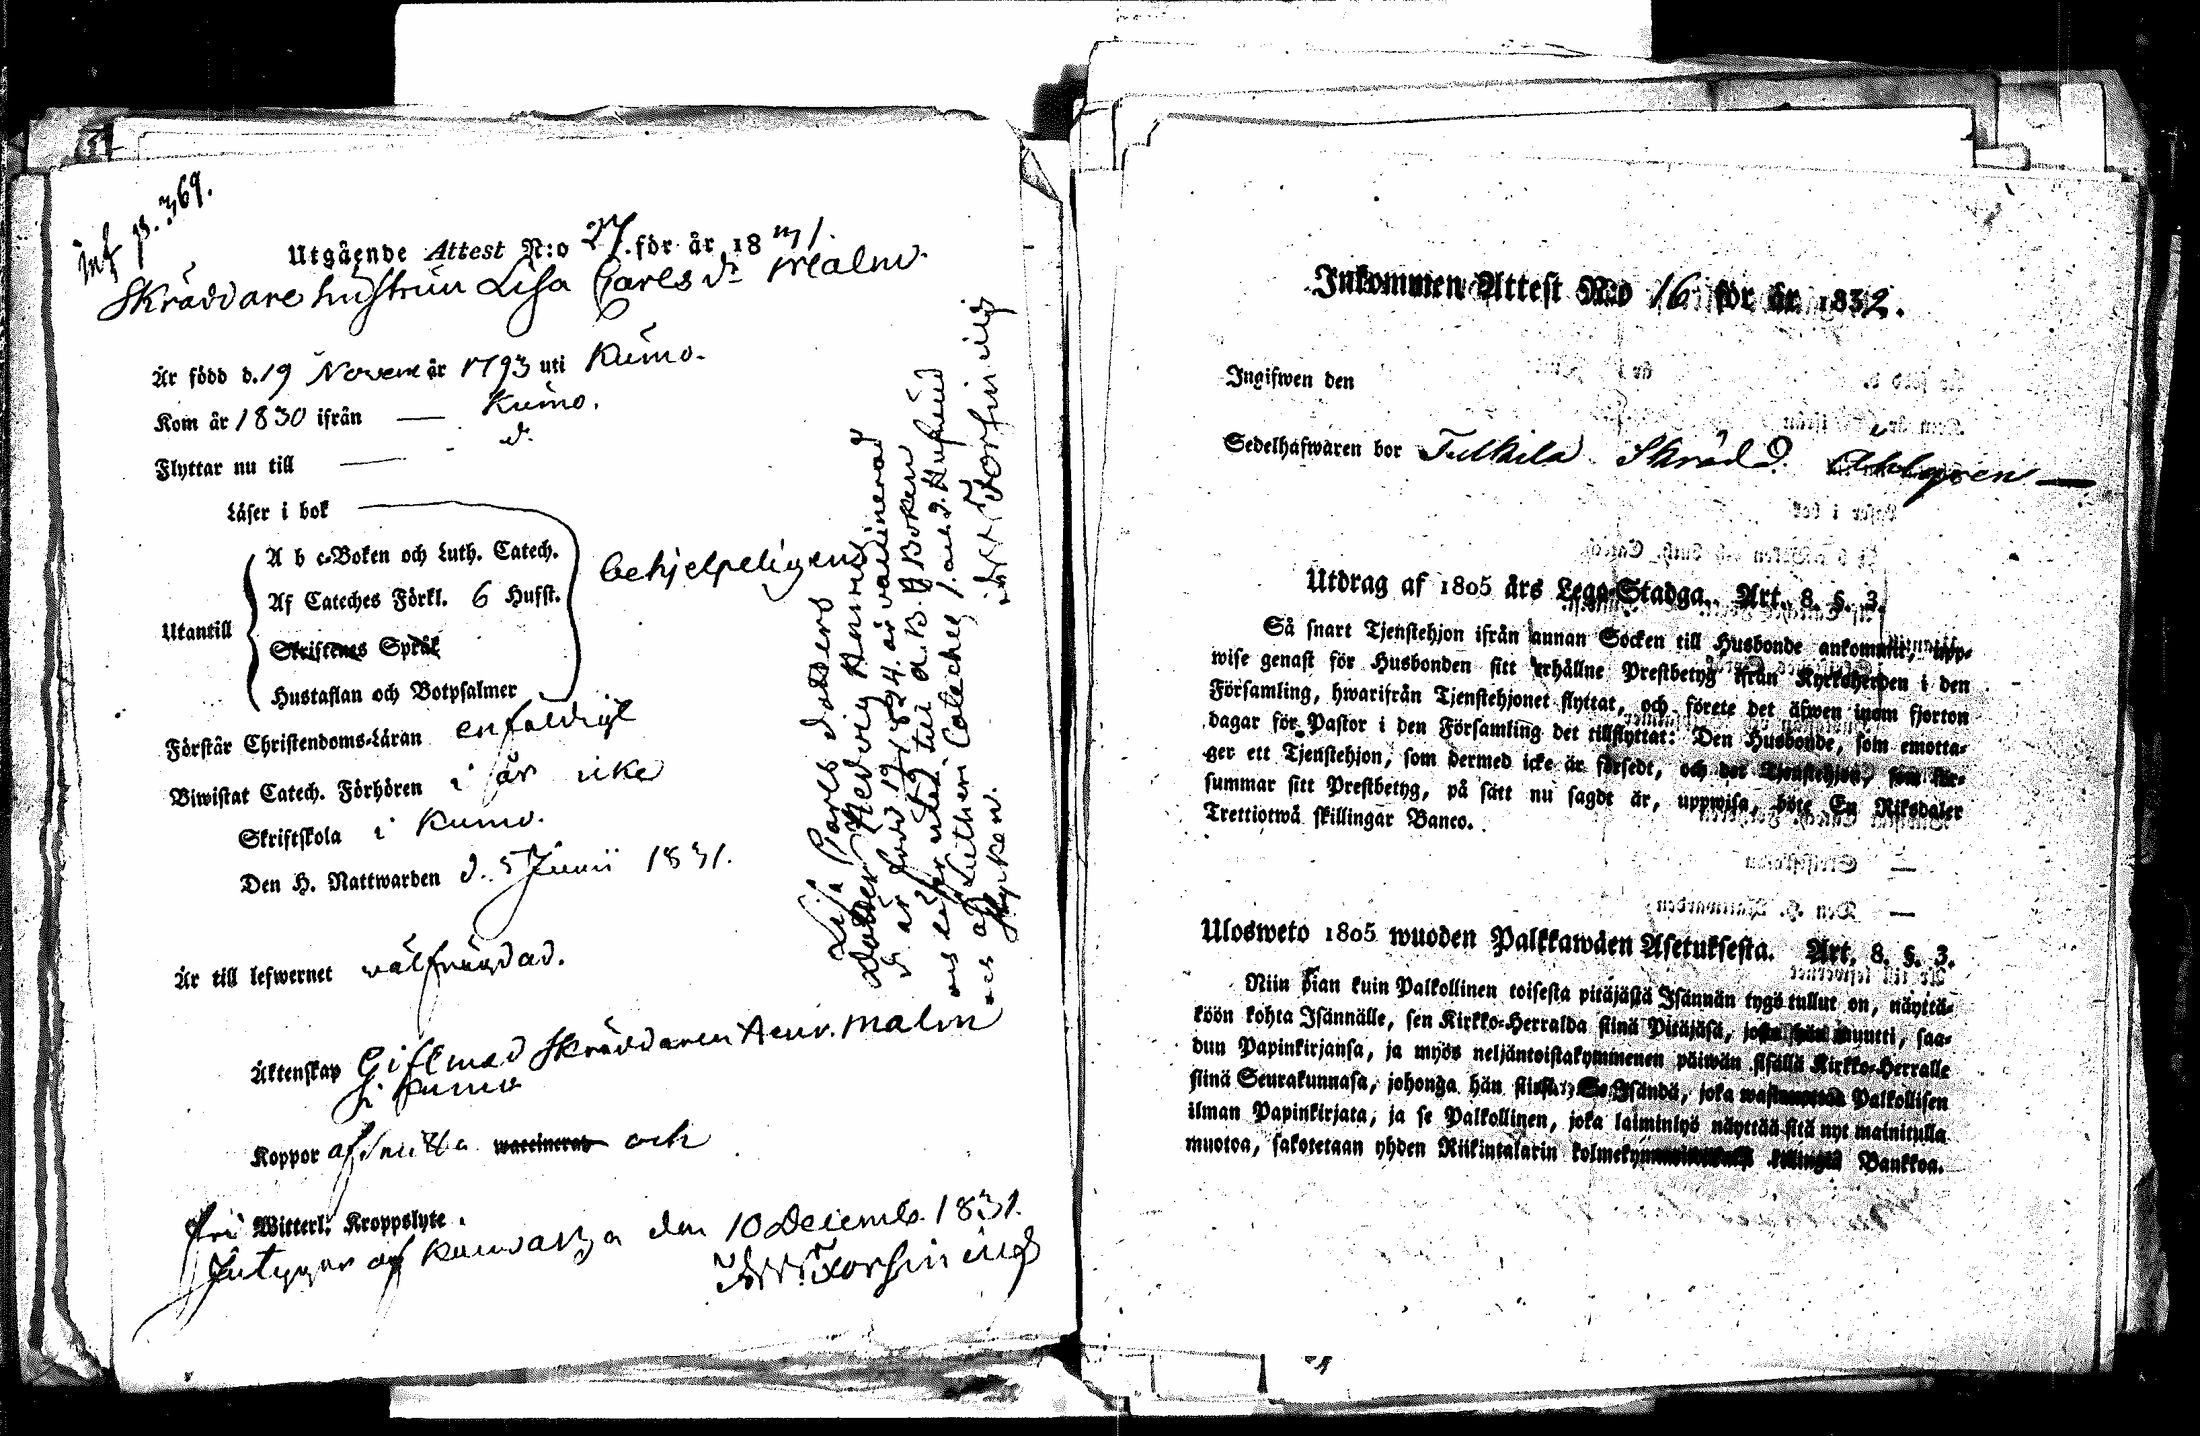 inf p. 369.
Utgående Attest N:o 27. för år 1831.
Skräddare hustrun Lisa Carlsdr Malm.
Är född d. 19 Novem år 1793 uti Kumo.
Kom år 1830 ifrån — Kumo.
Flyttar nu till — d:
Läser i bok
A b c-Boken och Luth. Catech.
Af Cateches Förkl. 6 Hufst.
behjelpeligen
Utantill
Skriftenes Språk
Hustaflan och Botpsalmer
Förstår Christendoms-Läran enfaldigt
Biwistat Catech. Förhören i år icke
Skriftskola i Kumo.
Den H. Nattwarden d. 5 Junii 1831.
Är till lefwernet välfrägdad.
Äktenskap Gift med Skräddaren Henr. Malm
i Kumo
Koppor afsnitta waccinerad och
fri Witterl. Kroppslyte.
Intygar af den 10 Decemb. 1831.
Lisa Carls dotters
dotter Hedvig Henrics
d. är född 19/4 1824. är vaccinerad
och läser uta till A. B. C Boken
och af Lutheri Cateches 1. och 2. Hufvud
stycken.
Inkommen Attest N:o 16 för år 1832.
Ingifwen den
Sedelhafwaren bor Tulkila Skrädd.
Utdrag af 1805 års Lego-Stadga. Art. 8. §. 3.
Så snart Tjenstehjon ifrån annan Socken till Husbonde ankommit, upp-
wise genast för Husbonden sitt erhållne Prestbetyg ifrån Kyrkoherden i den
Församling, hwarifrån Tjenstehjonet flyttat, och förete det äfwen inom fjorton
dagar för Pastor i den Församling det tillflyttat: Den Husbonde, som emotta-
ger ett Tjenstehjon, som dermed icke är försedt, och det Tjenstehjon, som för-
summar sitt Prestbetyg, på sätt nu sagdt är, uppwisa, böte En Riksdaler
Trettiotwå skillingar Banco.
Ulosweto 1805 wuoden Palkkawäen Asetuksesta. Art. 8. §. 3.
Niin pian kuin Palkollinen toisesta pitäjästä Isännän tygö tullut on, näyttä-
köön kohta Isännälle, sen Kirkko-Herralda siinä Pitäjäsä, josta hän muutti, saa-
dun Papinkirjansa, ja myös neljäntoistakymmenen päiwän sisällä Kirkko-Herralle
siinä Seurakunnasa, johonga hän Se Isändä, joka Palkollisen
ilman Papinkirjata, ja se Palkollinen, joka laiminlyö näyttää sitä nyt mainitulla
muotoa, sakotetaan yhden Riikintalarin Bankkoa.